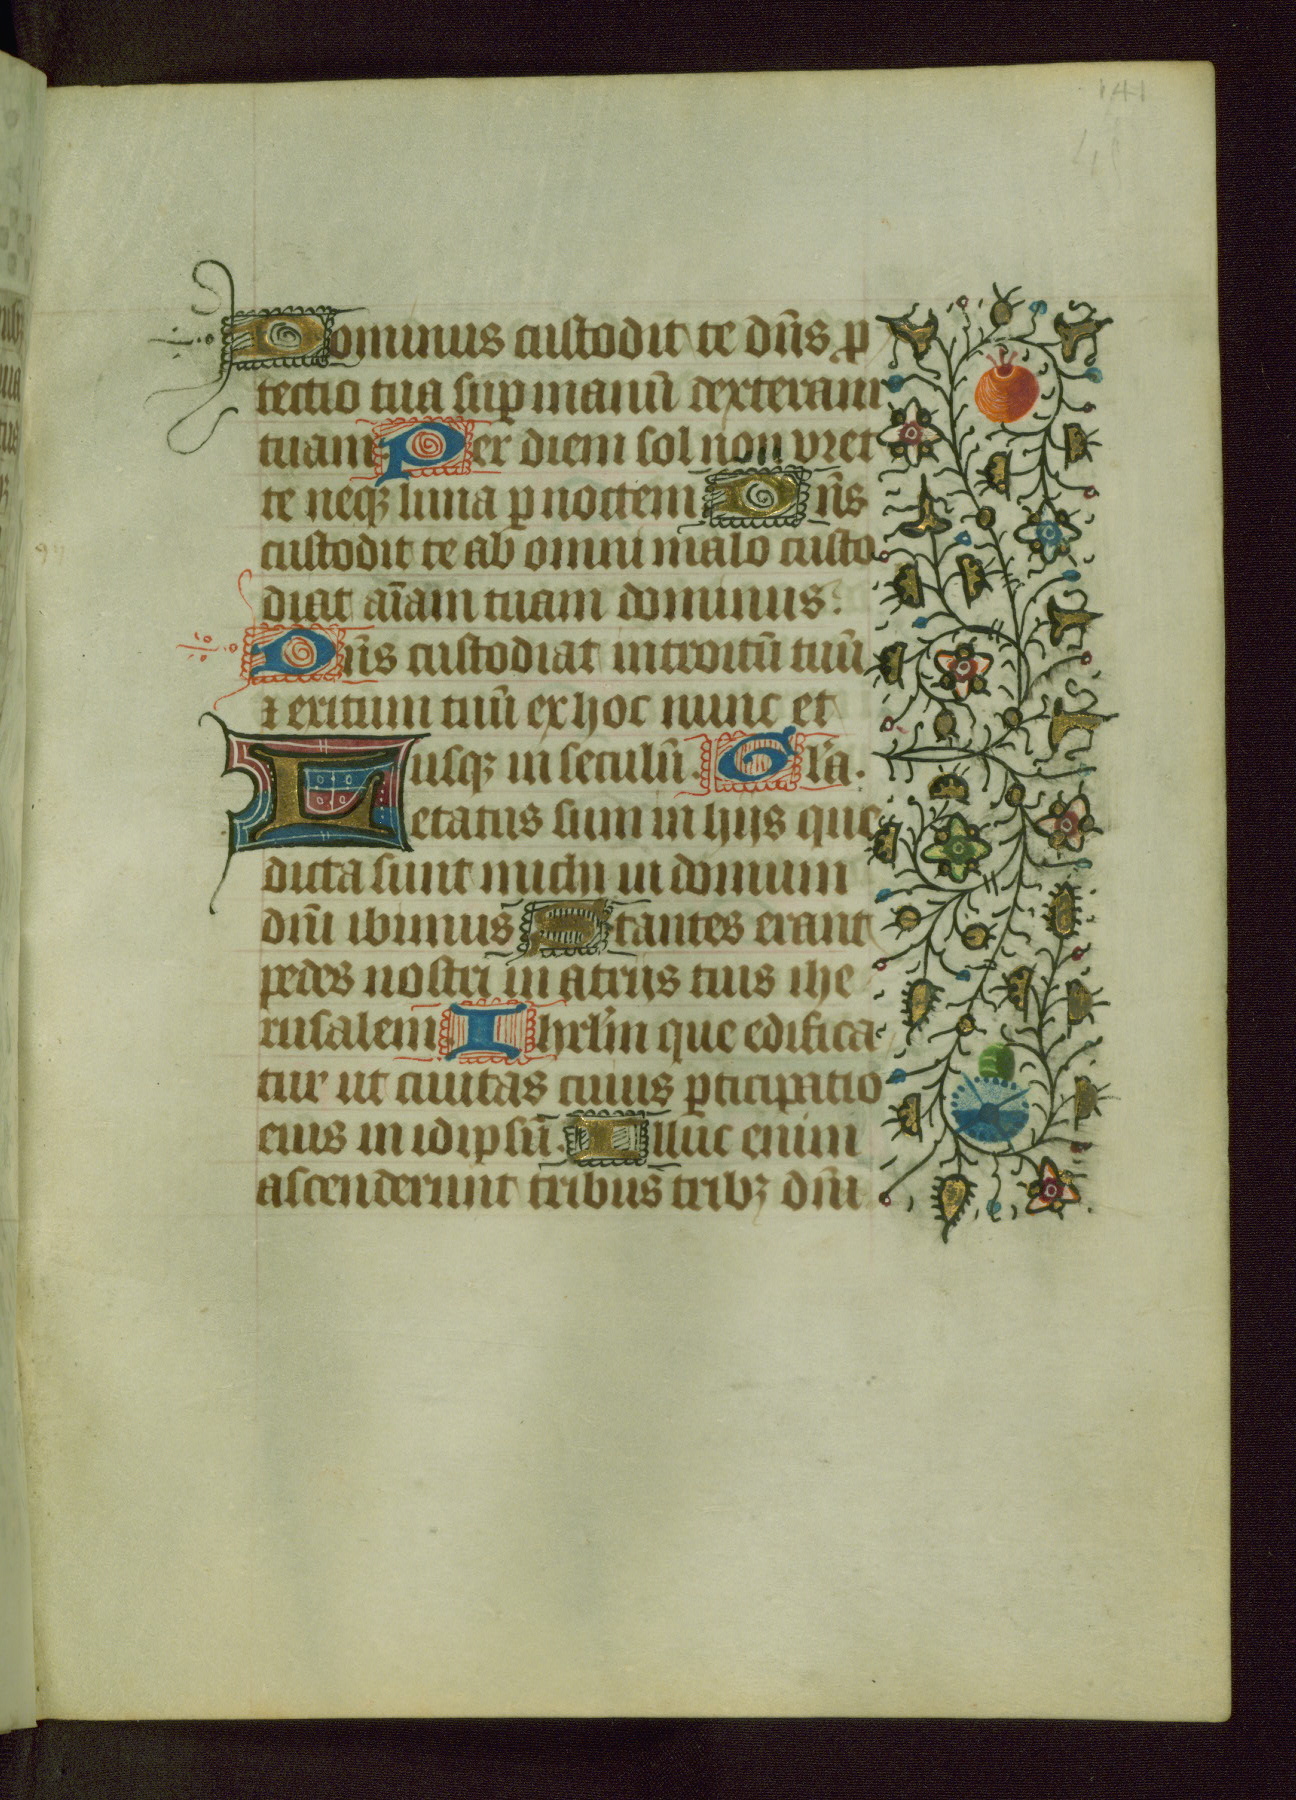 141
45
Dominus custodit te dn̄s ꝓ
tectio tua suꝑ manū dexteram
tuam Per diem sol non vret
te neqꝫ luna ꝑ noctem Dn̄s
custodit te ab omni malo custo
diat aīam tuam dominus.
Dn̄s custodiat introitū tuū
⁊ exitum tuū ex hoc nunc et
usqꝫ in seculū. Gl̄a.
Letatus sum in hijs que
dicta sunt michi in domum
dn̄i ibimus Stantes erant
pedes nostri in atrijs tuis ihe
rusalem Ihrl̄m que edifica
tur ut ciuitas cuius ꝑticipatio
eius in idipsū. Illuc enim
ascenderunt tribus tribꝫ dn̄i